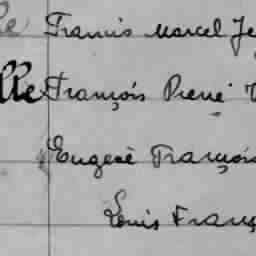 le Francis Marcel Je
lle François Pierre V
Eugene François
Louis Franç